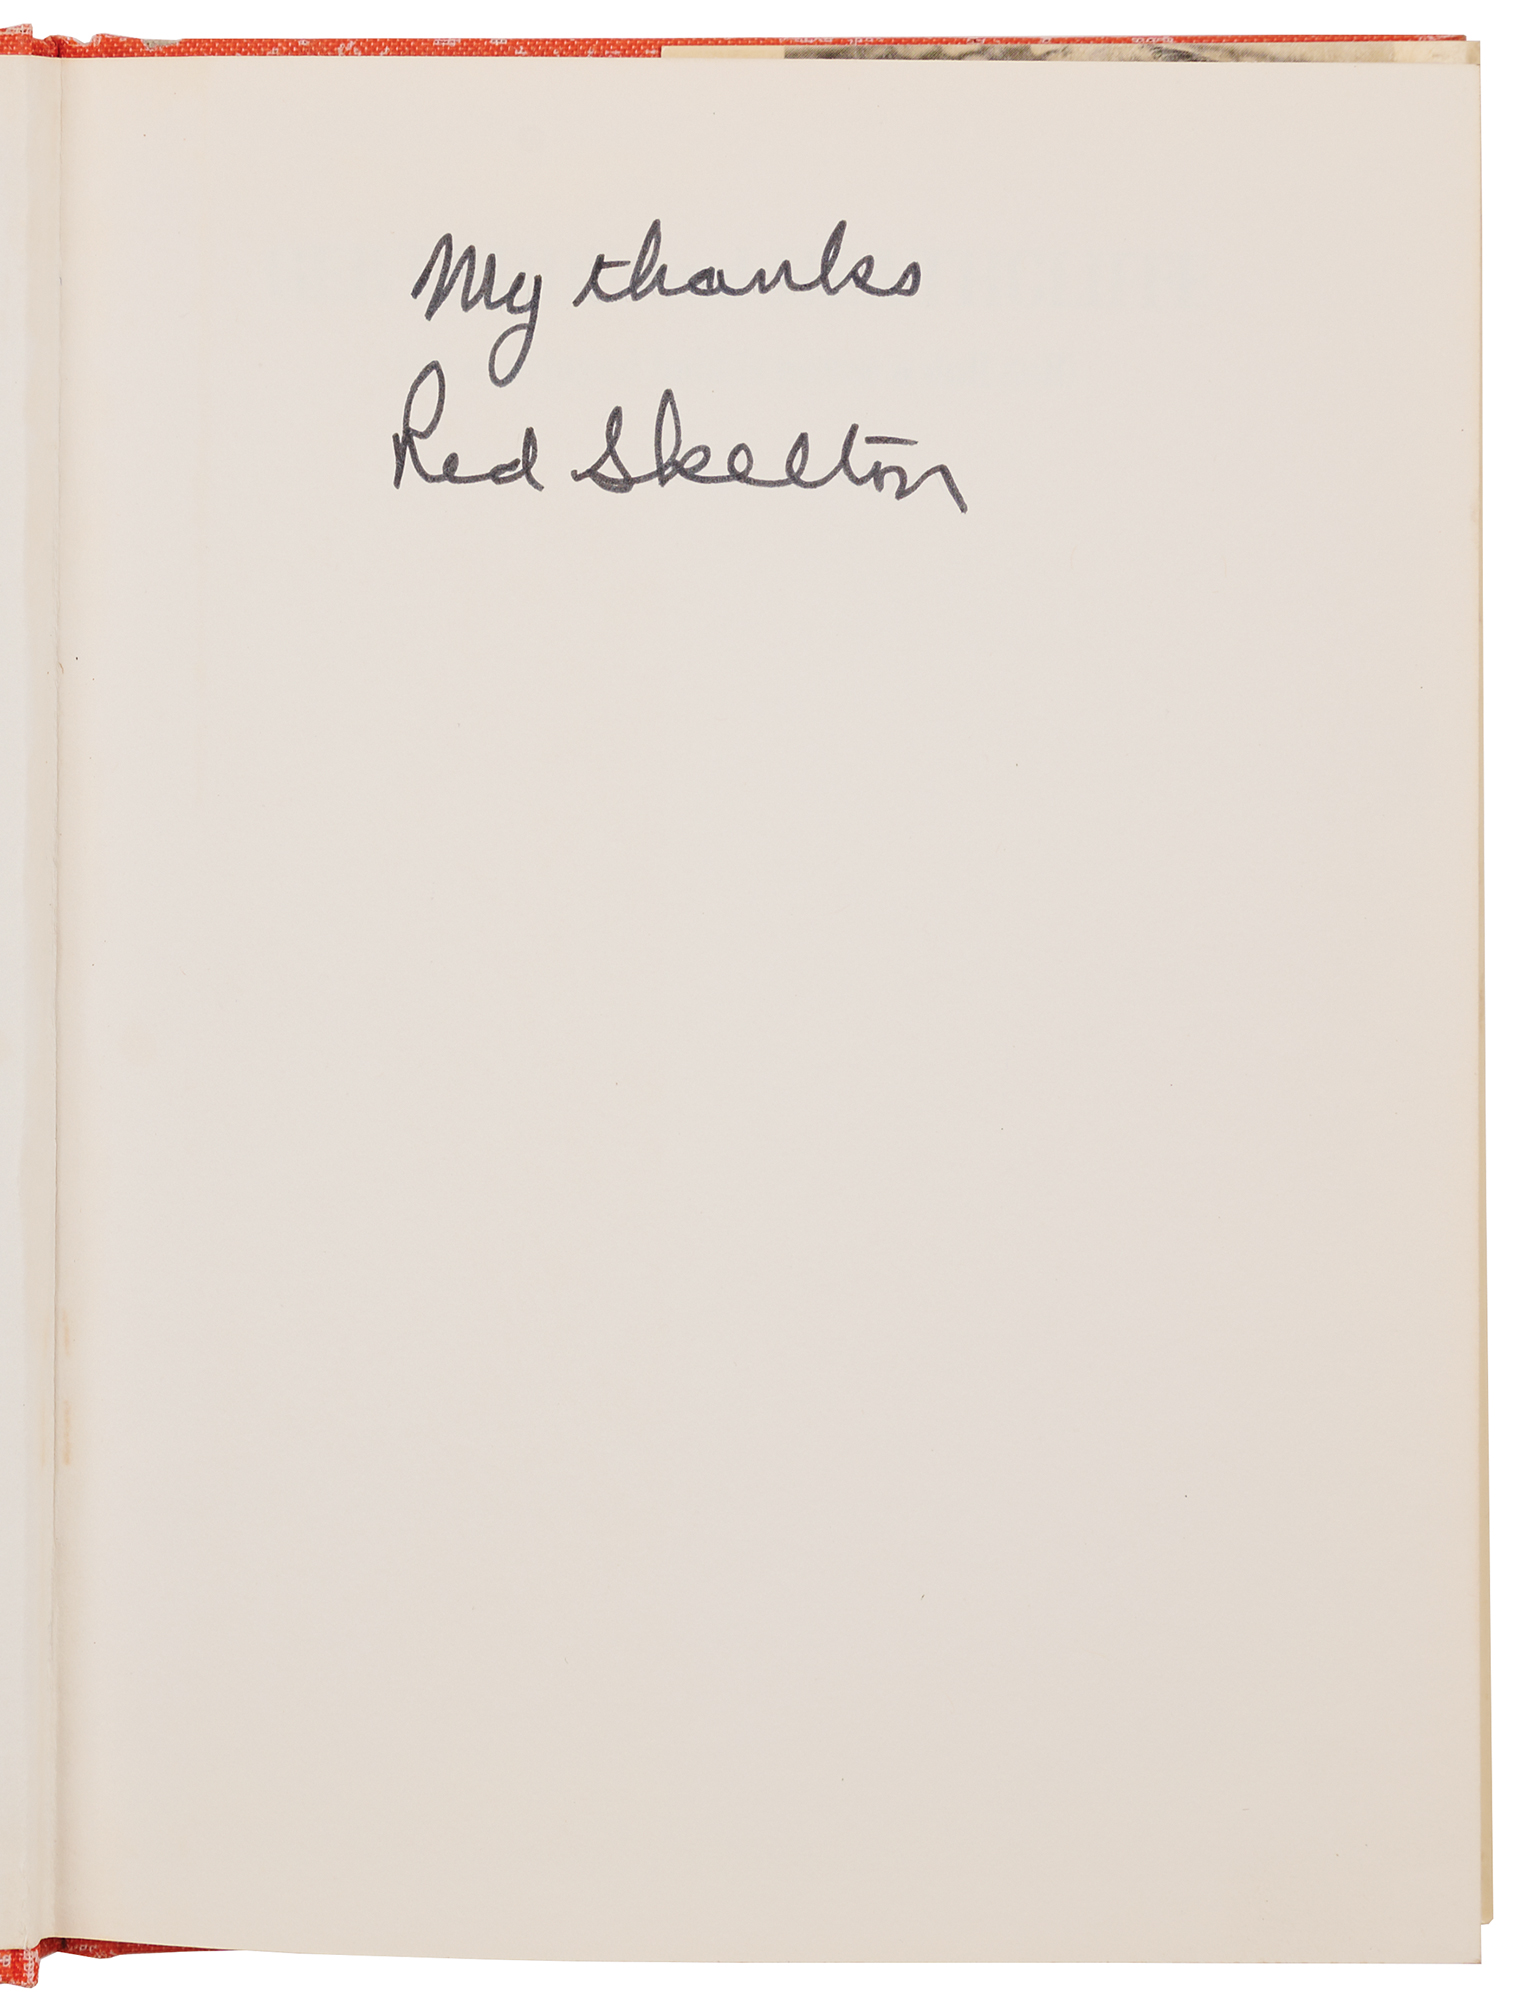 My thanks
Red Skelton